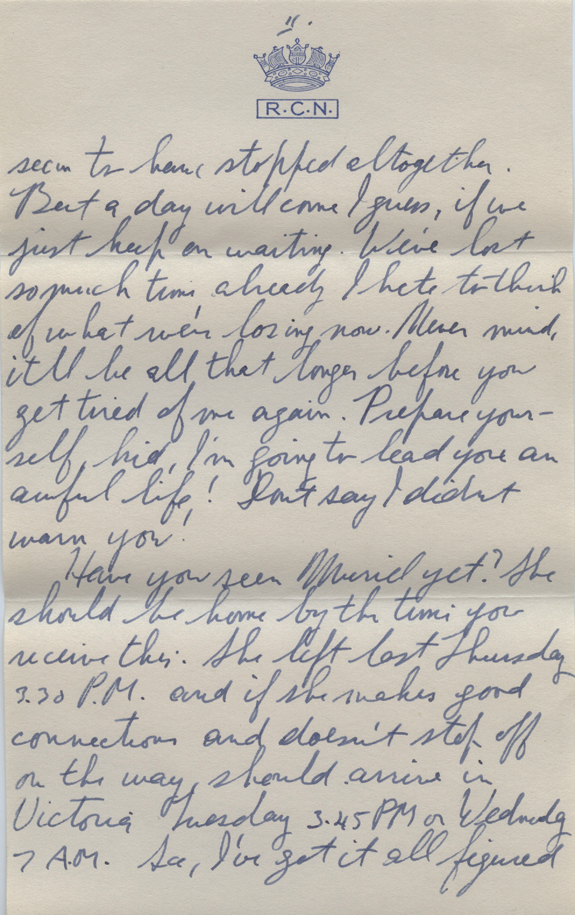 11.
R.C.N.
seem to have stopped altogether.
But a day will come I guess, if we
just keep on waiting. We've lost
so much time already I hate to think
of what we're losing now. Never mind,
it'll be all that longer before you
get tired of me again. Prepare your-
self, kid, I'm going to lead you an
awful life! Don't say I didn't
warn you!
Have you seen Muriel yet? She
should be home by the time you
receive this. She left last Thursday
3.30 P.M. and if she makes good
connections and doesn't stop off
on the way, should arrive in
Victoria Tuesday 3.45 PM or Wednesdy
7 A.M. See, I've got it all figured